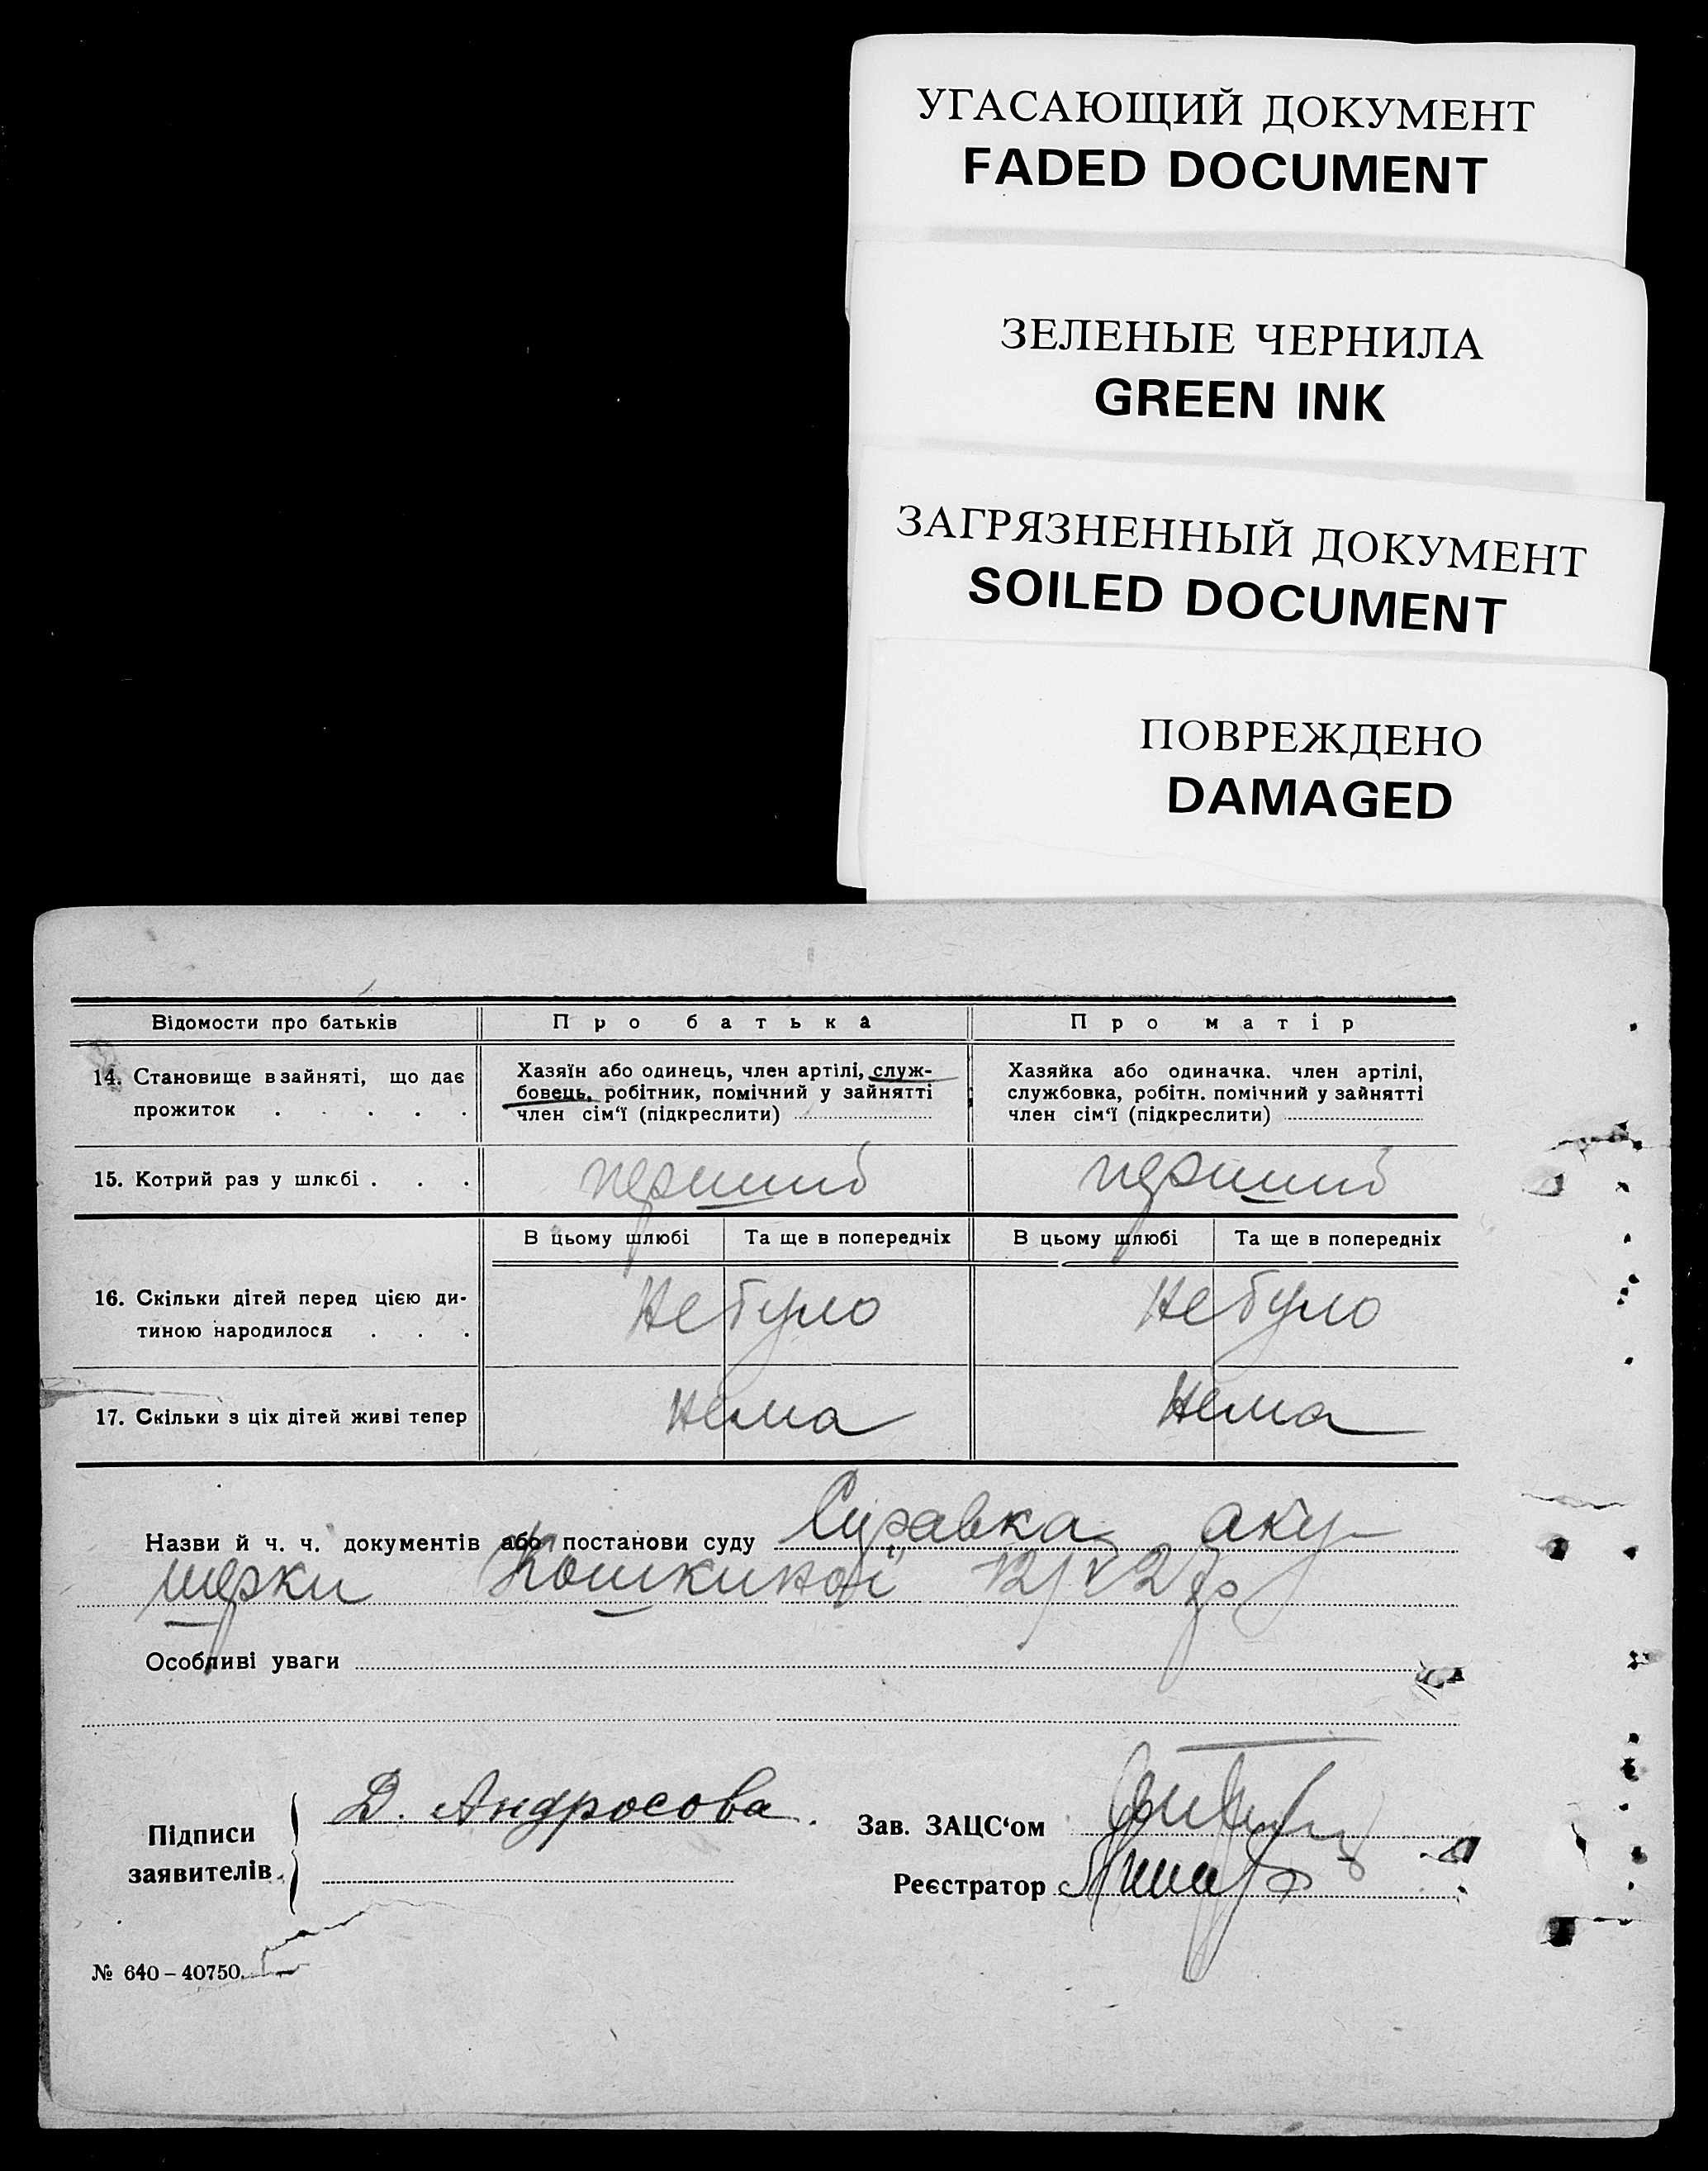 УГАСАЮЩИЙ ДОКУМЕНТ
FADED DOCUMENT
ЗЕЛЕНЫЕ ЧЕРНИЛА
GREEN INK
ЗАГРЯЗНЕННЫЙ ДОКУМЕНТ
SOILED DOCUMENT
ПОВРЕЖДЕНО
DAMAGED
Відомости про батьків
Про батька
Про матір
14. Становище в зайняті, що дає
прожиток . . . . .
Хазяїн або одинець, член артілі, служ-
бовець, робітник, помічний у зайнятті
член сім'ї (підкреслити)
Хазяйка або одиначка. член артілі,
службовка, робітн. помічний у зайнятті
член сім'ї (підкреслити)
15. Котрий раз у шлюбі . . .
перший
перший
В цьому шлюбі
Та ще в попередніх
В цьому шлюбі
Та ще в попередніх
16. Скільки дітей перед цією ди-
тиною народилося . . .
Не було
Не було
17. Скільки з ціх дітей живі тепер
Нема
Нема
Назви й ч. ч. документів або постанови суду Справка аку-
шерки Кошкиної
Особливі уваги
Підписи
заявителів
Д. Андросова.
Зав. ЗАЦС‘ом
Реєстратор
№ 640–40750.